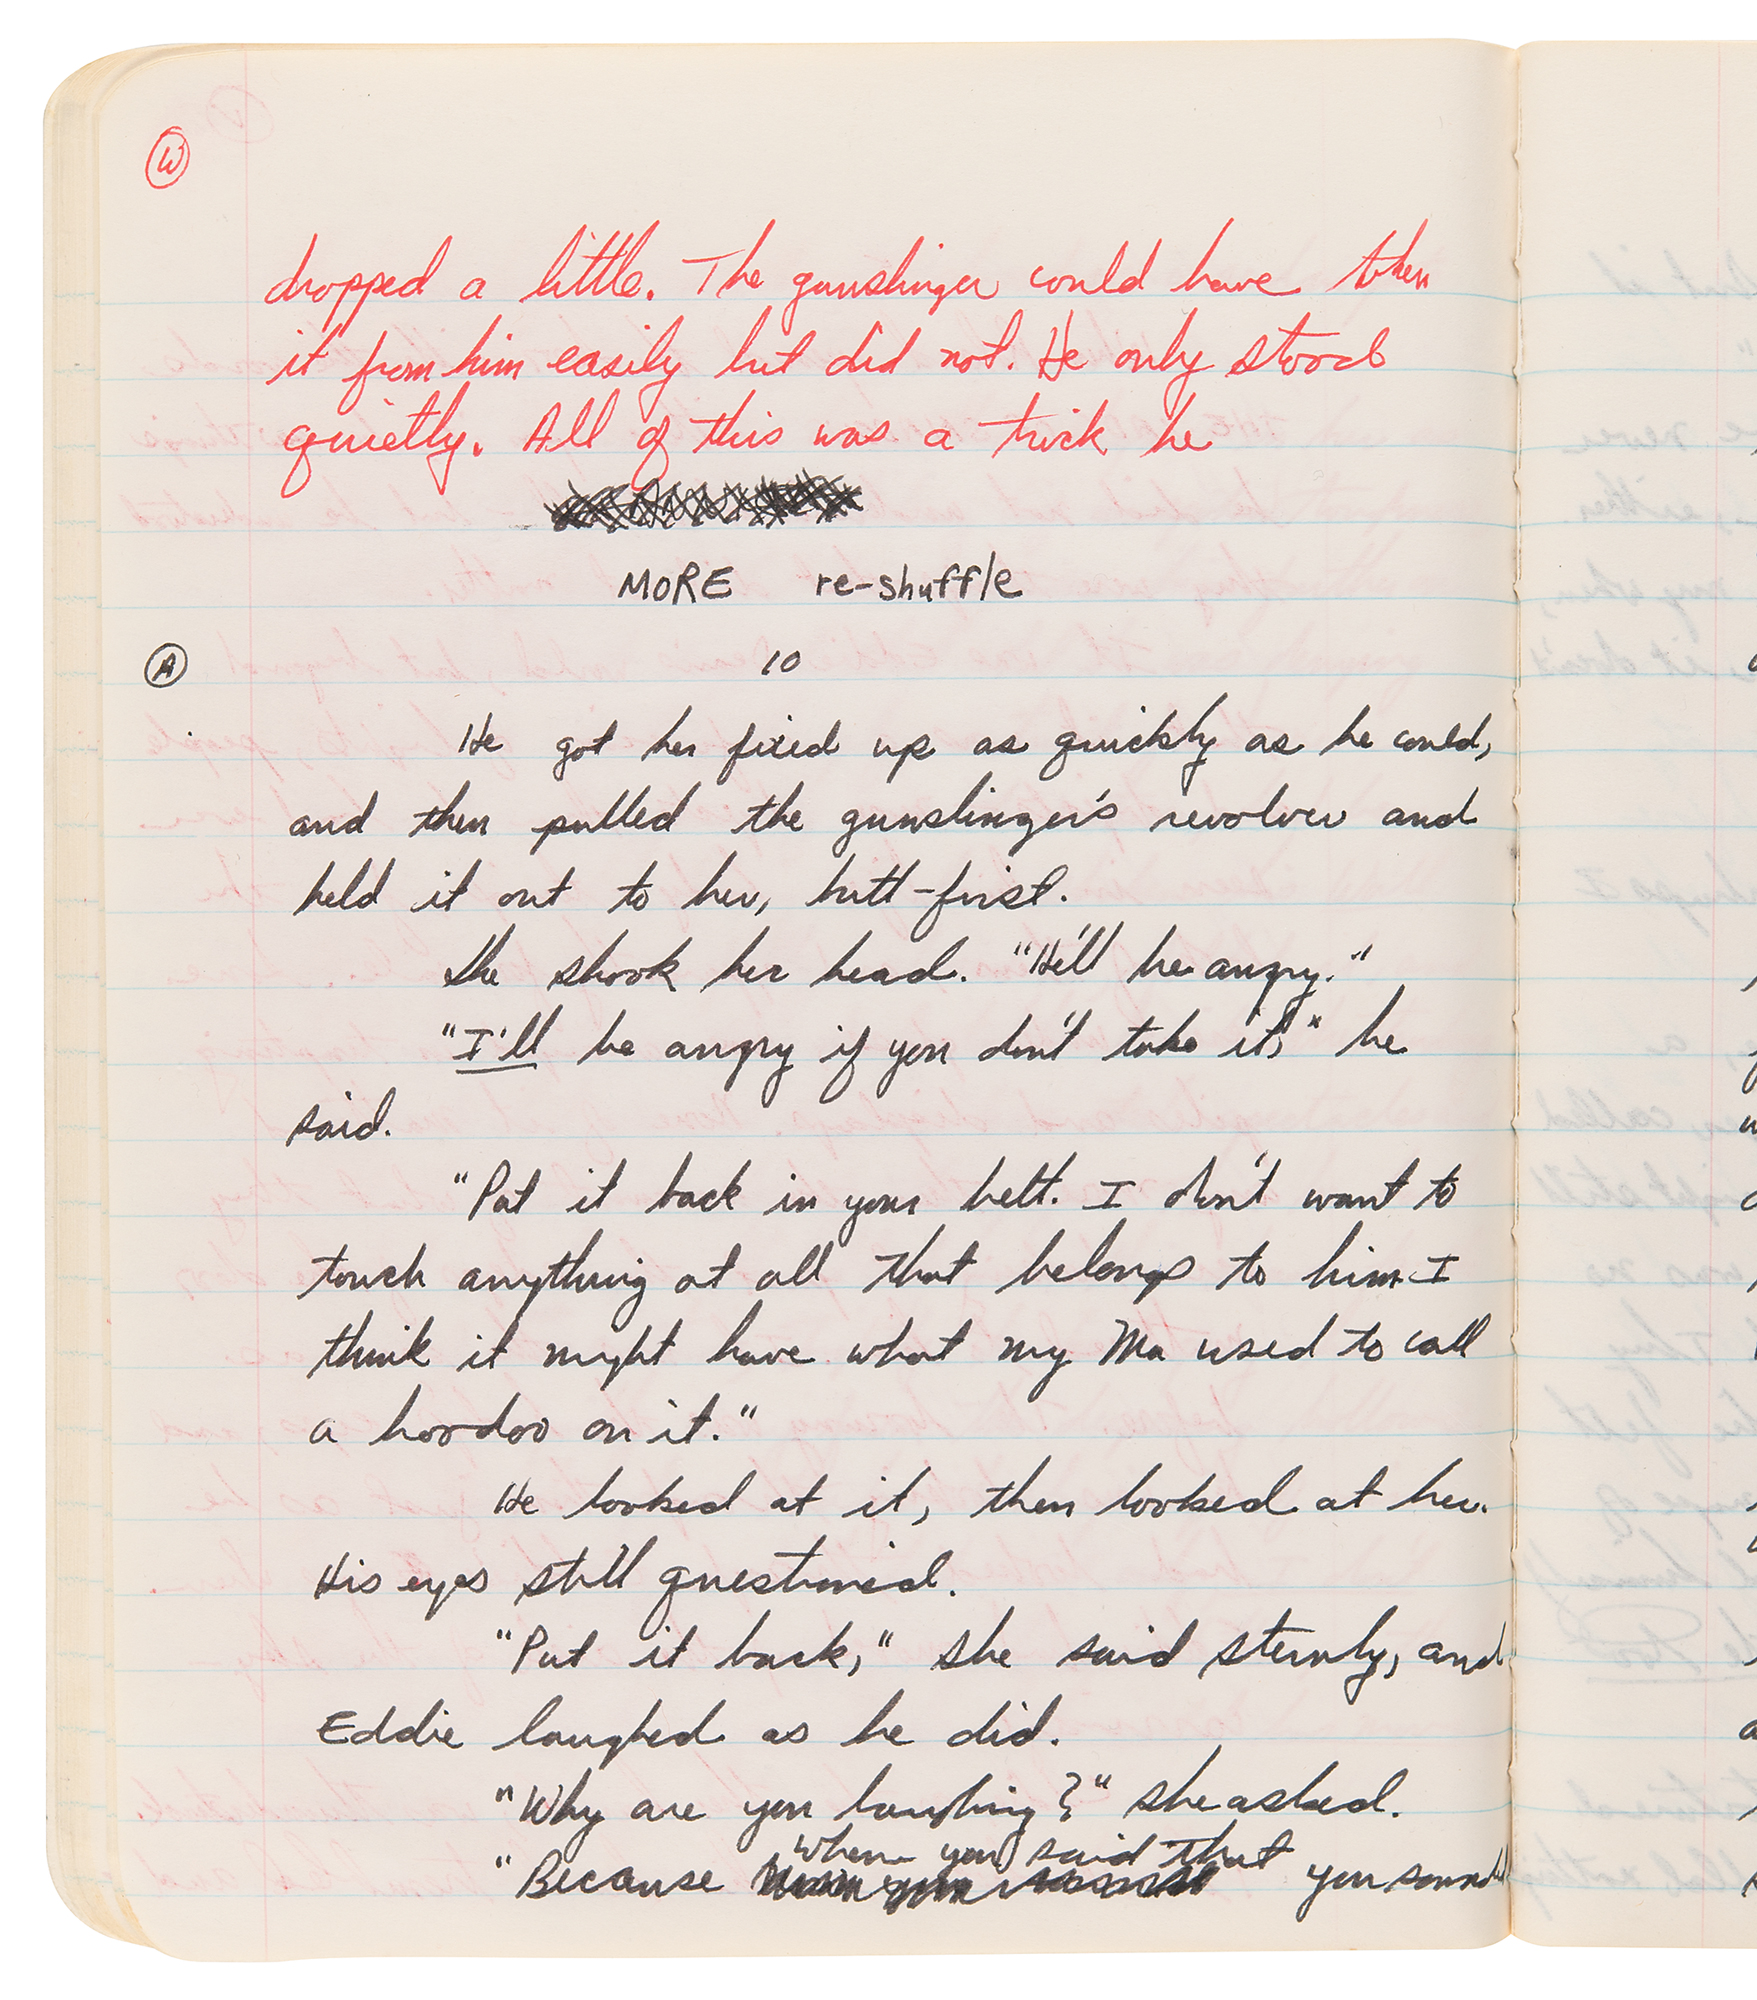 W
dropped a little. The gunslinger could have taken
it from him easily but did not. He only stood
quietly. All of this was a trick he
MORE re-shuffle
A
10
He got her fixed up as quickly as he could,
and then pulled the gunslinger's revolver and
held it out to her, butt-first.
She shook her head. "He'll be angry."
"I'll be angry if you don't take it," he
said.
"Put it back in your belt. I don't want to
touch anything at all that belongs to him I
think it might have what my Ma used to call
a hoodoo on it."
He looked at it, then looked at her.
His eyes still questioned.
"Put it back," she said sternly, and
Eddie laughed as he did.
"Why are you laughing?" she asked.
when you said that
"Because you sounded